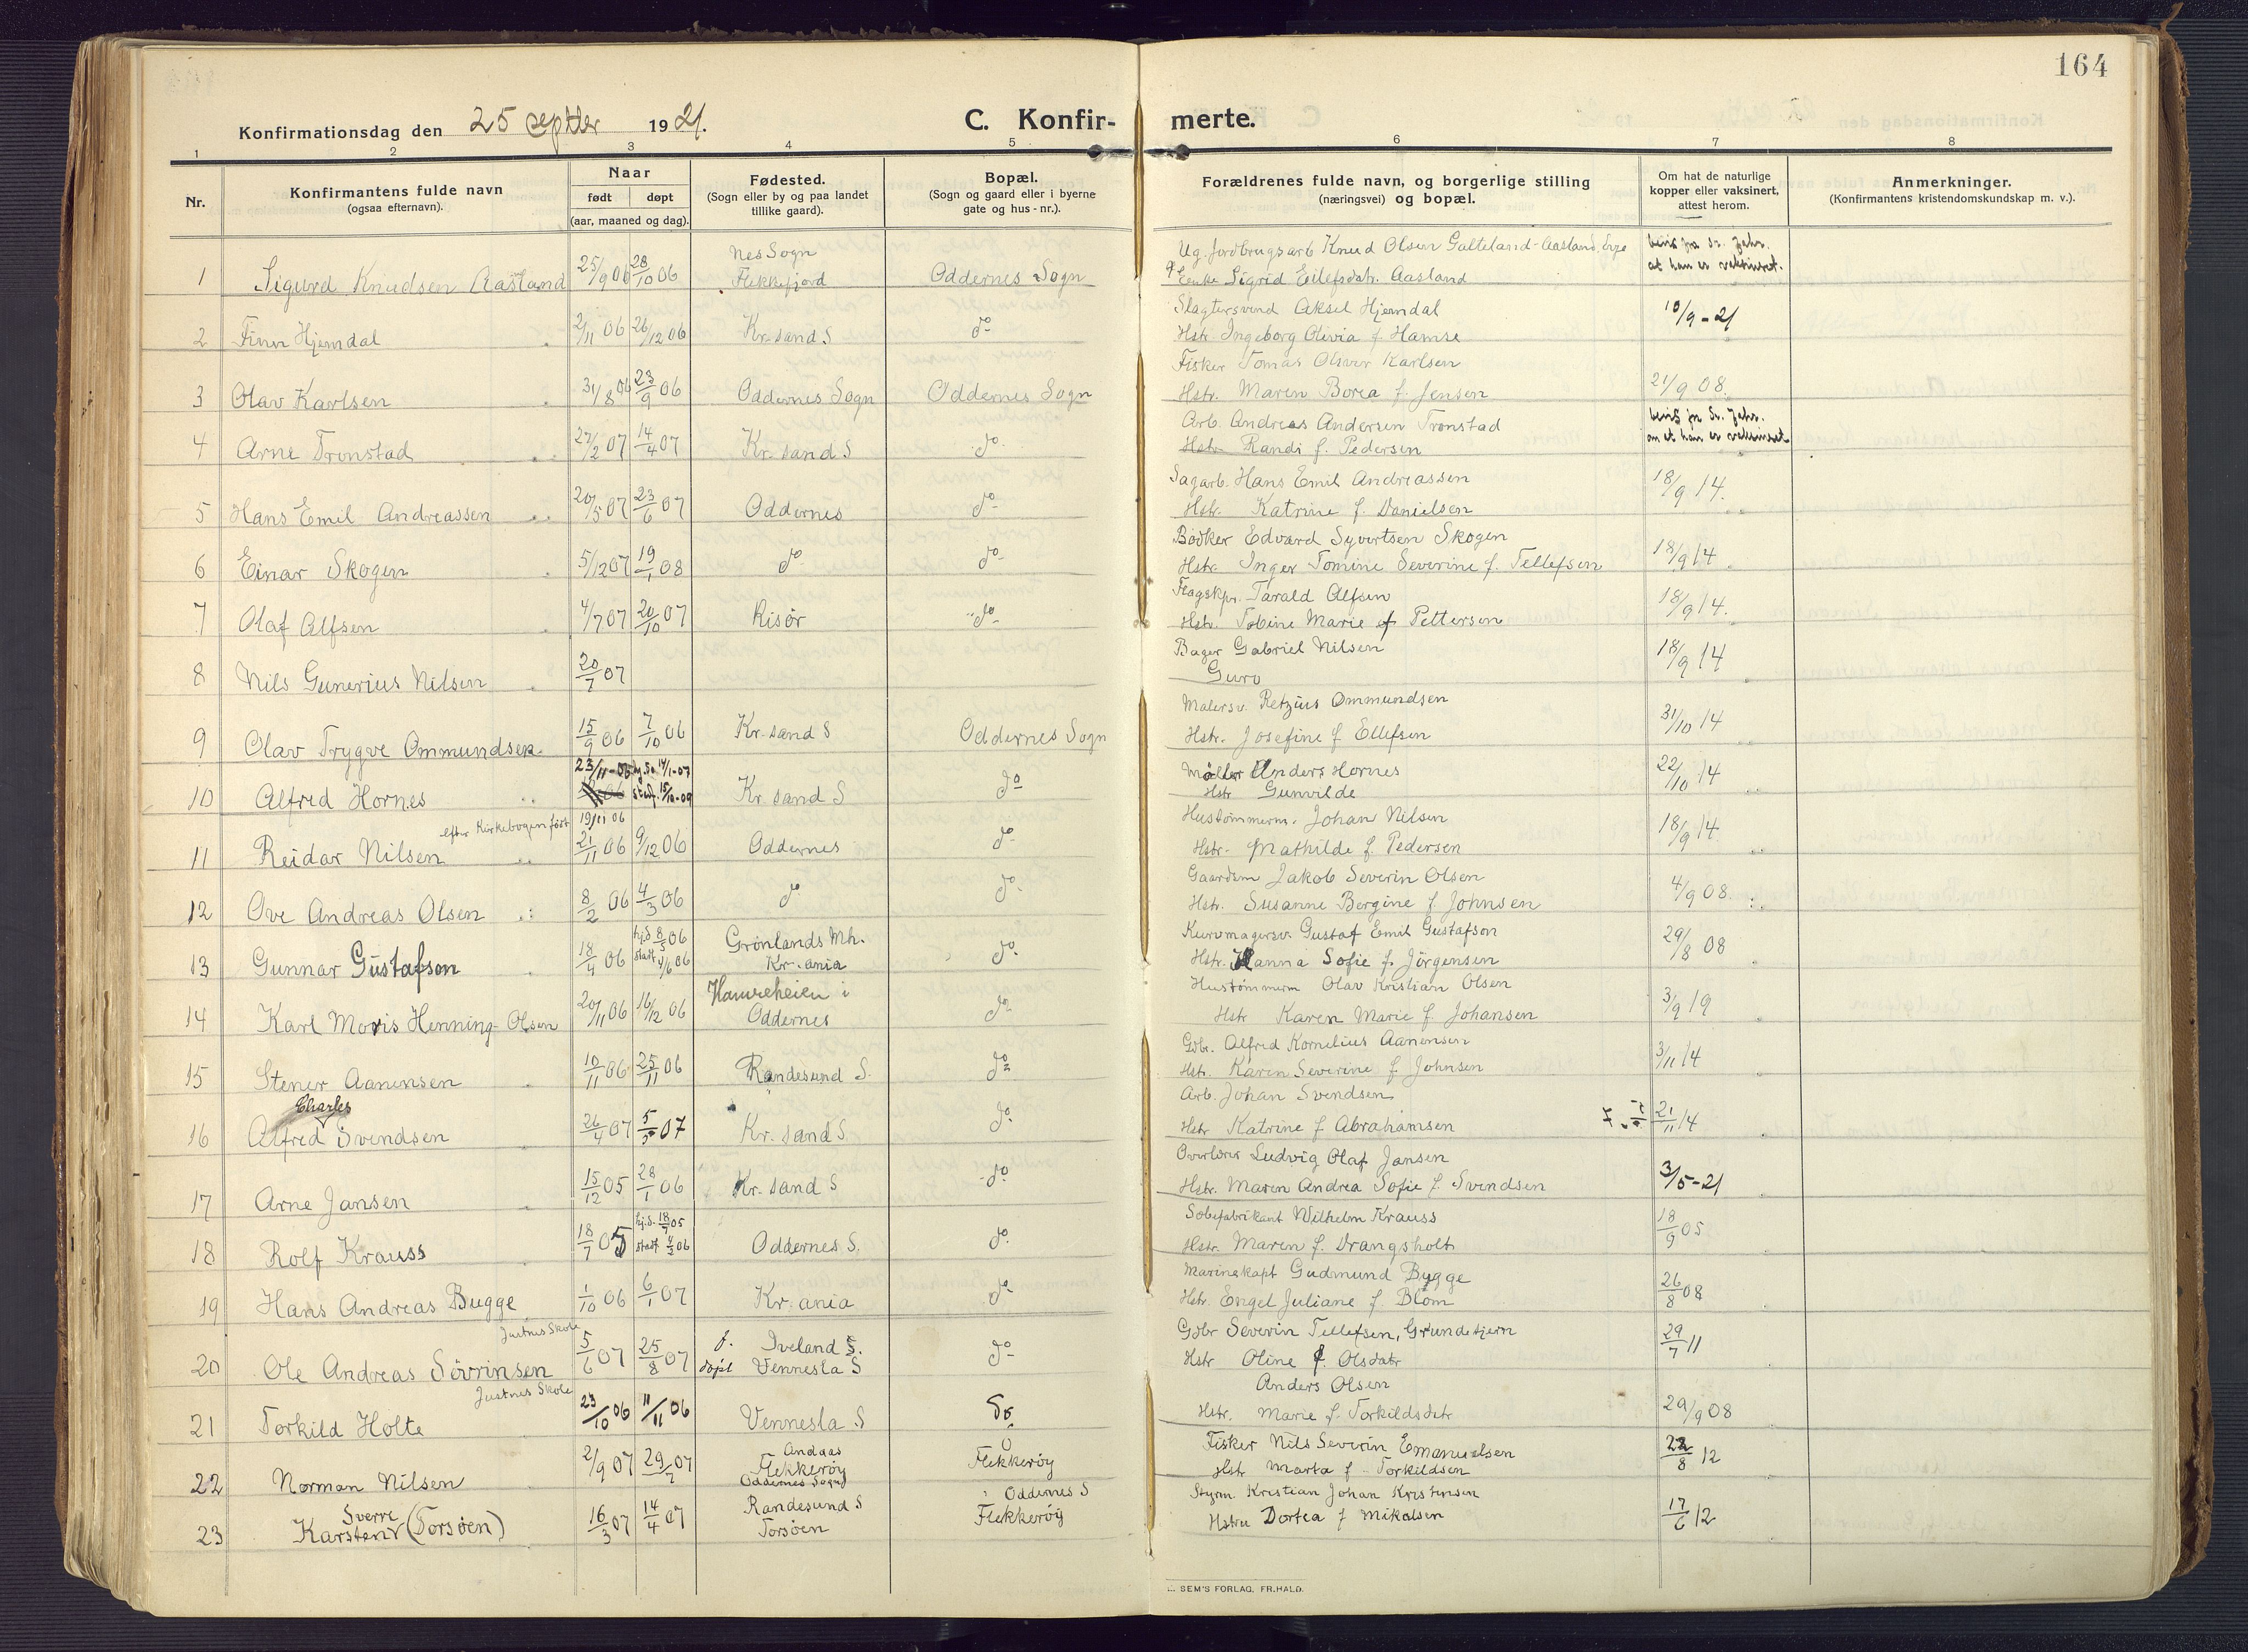 164
Konfirmationsdag den 25 septber 1921.
C. Konfir- merte.
1 2 3 4 5 6 7 8
Nr.
Konfirmantens fulde navn
(ogsaa efternavn).
Naar
født døpt
(aar, maaned og dag).
Fødested.
(Sogn eller by og paa landet
tillike gaard).
Bopæl.
(Sogn og gaard eller i byerne
gate og hus-nr.).
Forældrenes fulde navn, og borgerlige stilling
(næringsvei) og bopæl.
Om hat de naturlige
kopper eller vaksinert,
attest herom.
Anmerkninger.
(Konfirmantens kristendomskundskap m. v.).
Nes Sogn Ug. Jordbrugsarb Knud Olsen Galteland-Aasland
1 Sigurd Knudsen Aasland 25/9 06 28/10 06 Flekkefjord Oddernes Sogn Enke Sigrid Eilefsdatr. Aasland at han er vaksineret.
Slagtersvend Aksel Hjemdal
2 Finn Hjemdal 2/11 06 26/12 06 Kr.sand S do Hstr Ingeborg Olivia f. Hamre 10/9-21
Fisker Tomas Oliver Karlsen
3 Olav Karlsen 31/8 06 23/9 06 Oddernes Sogn Oddernes Sogn Hstr. Maren Borea f. Jensen 21/9 08.
Arb. Andreas Andersen Tronstad
4 Arne Tronstad 27/2 07 14/4 07 Kr.sand S do Hstr Randi f. Pedersen om at han er vaksineret
Sagarb. Hans Emil Andreassen
5 Hans Emil Andreassen 20/5 07 23/6 07 Oddernes do Hstr. Katrine f. Danielsen 18/9 14.
Bødker Edvard Syvertsen Skogen
6 Einar Skogen 5/12 07 19/1 08 do do Hstr. Inger Tomine Severine f. Tellefsen 18/9 14
Flagskpr. Tarald Alfsen
7 Olaf Alfsen 4/7 07 20/10 07 Risør do Hstr. Tobine Marie f Pettersen 18/9 14.
Bager Gabriel Nilsen
8 Nils Gunerius Nilsen 20/7 07 Guro 18/9 14
Malersv. Retzius Ommundsen
9 Olav Trygve Ommundsen 15/9 06 7/10 06 Kr.sand S Oddernes Sogn Hstr. Josefine f Ellefsen 31/10 14
23/11-06 14/1-07 Møller Anders Hornes
10 Alfred Hornes Kr.sand S do Hstr Gunvilde 22/10 14
efter Kirkebogen født 19/11 06 Hustømmerm. Johan Nilsen
11 Reidar Nilsen 21/11 06 9/12 06 Oddernes do Hstr. Mathilde f. Pedersen 18/9 14.
Gaardsm Jakob Severin Olsen
12 Ove Andreas Olsen 8/2 06 4/3 06 do do Hstr. Susanne Bergine f Johnsen 4/9 08.
hj.d 8/5 06 Grønlands Mh. Kurvmagersv. Gustaf Emil Gustafson
13 Gunnar Gustafson 18/4 06 stadf. 4/6 06 Kr.ania do Hstr. Hanna Sofie f. Jörgensen 29/8 08
Hamreheien i Hustömmerm Olav Kristian Olsen
14 Karl Moris Henning-Olsen 20/11 06 16/12 06 Oddernes do Hstr Karen Marie f. Johansen 3/9 19
Gbr. Alfred Kornelius Aanensen
15 Stener Aanensen 10/11 06 25/11 06 Randesund S. do Hstr. Karen Severine f Johnsen 3/11 14
Charles Arb. Johan Svendsen
16 Alfred Svendsen 26/4 07 5/5 07 Kr.sand S. do Hstr Katrine f Abrahamsen 21/11 14
Overlærer Ludvig Olaf Jansen
17 Arne Jansen 15/12 05 28/1 06 Kr.sand S do Hstr. Maren Andrea Sofie f. Svendsen 3/5-21
hj.d. 18/7 05 Sæbefabrikant Wilhelm Krauss
18 Rolf Krauss 18/7 05 stadf 4/3 06 Oddernes S. do Hstr. Maren f. Drangsholt 18/9 05
Marinekapt Gudmund Bygge
19 Hans Andreas Bugge 1/10 06 6/1 07 Kr.ania do Hstr. Engel Juliane f. Blom 26/8 08
Justnes Skole f. Iveland S. Gdbr Severin Tellefsen, Grundetjern
20 Ole Andreas Sövrinsen 5/6 07 25/8 07 døpt Vennesla S do Hstr Oline f. Olsdatr 29/7 11
Justnes Skole Anders Olsen
21 Torkild Holte 23/10 06 11/11 06 Vennesla S Do Hstr. Marie f. Torkildsdtr 29/9 08
Andaas Fisker Nils Severin Emanuelsen
22 Norman Nilsen 2/9 07 29/7 07 Flekkerøy Flekkerøy Hstr Marta f. Torkildsen 22/8 12
Oddernes Sogn Oddernes S
Sverre Randesund S Styrm Kristian Johan Kristensen
23 Karsten (Torsøen) 16/3 07 14/4 07 Torsøen Flekkerøy Hstru Dortea f Mikalsen 17/6 12
SEM'S FORLAG, FR.HALD.